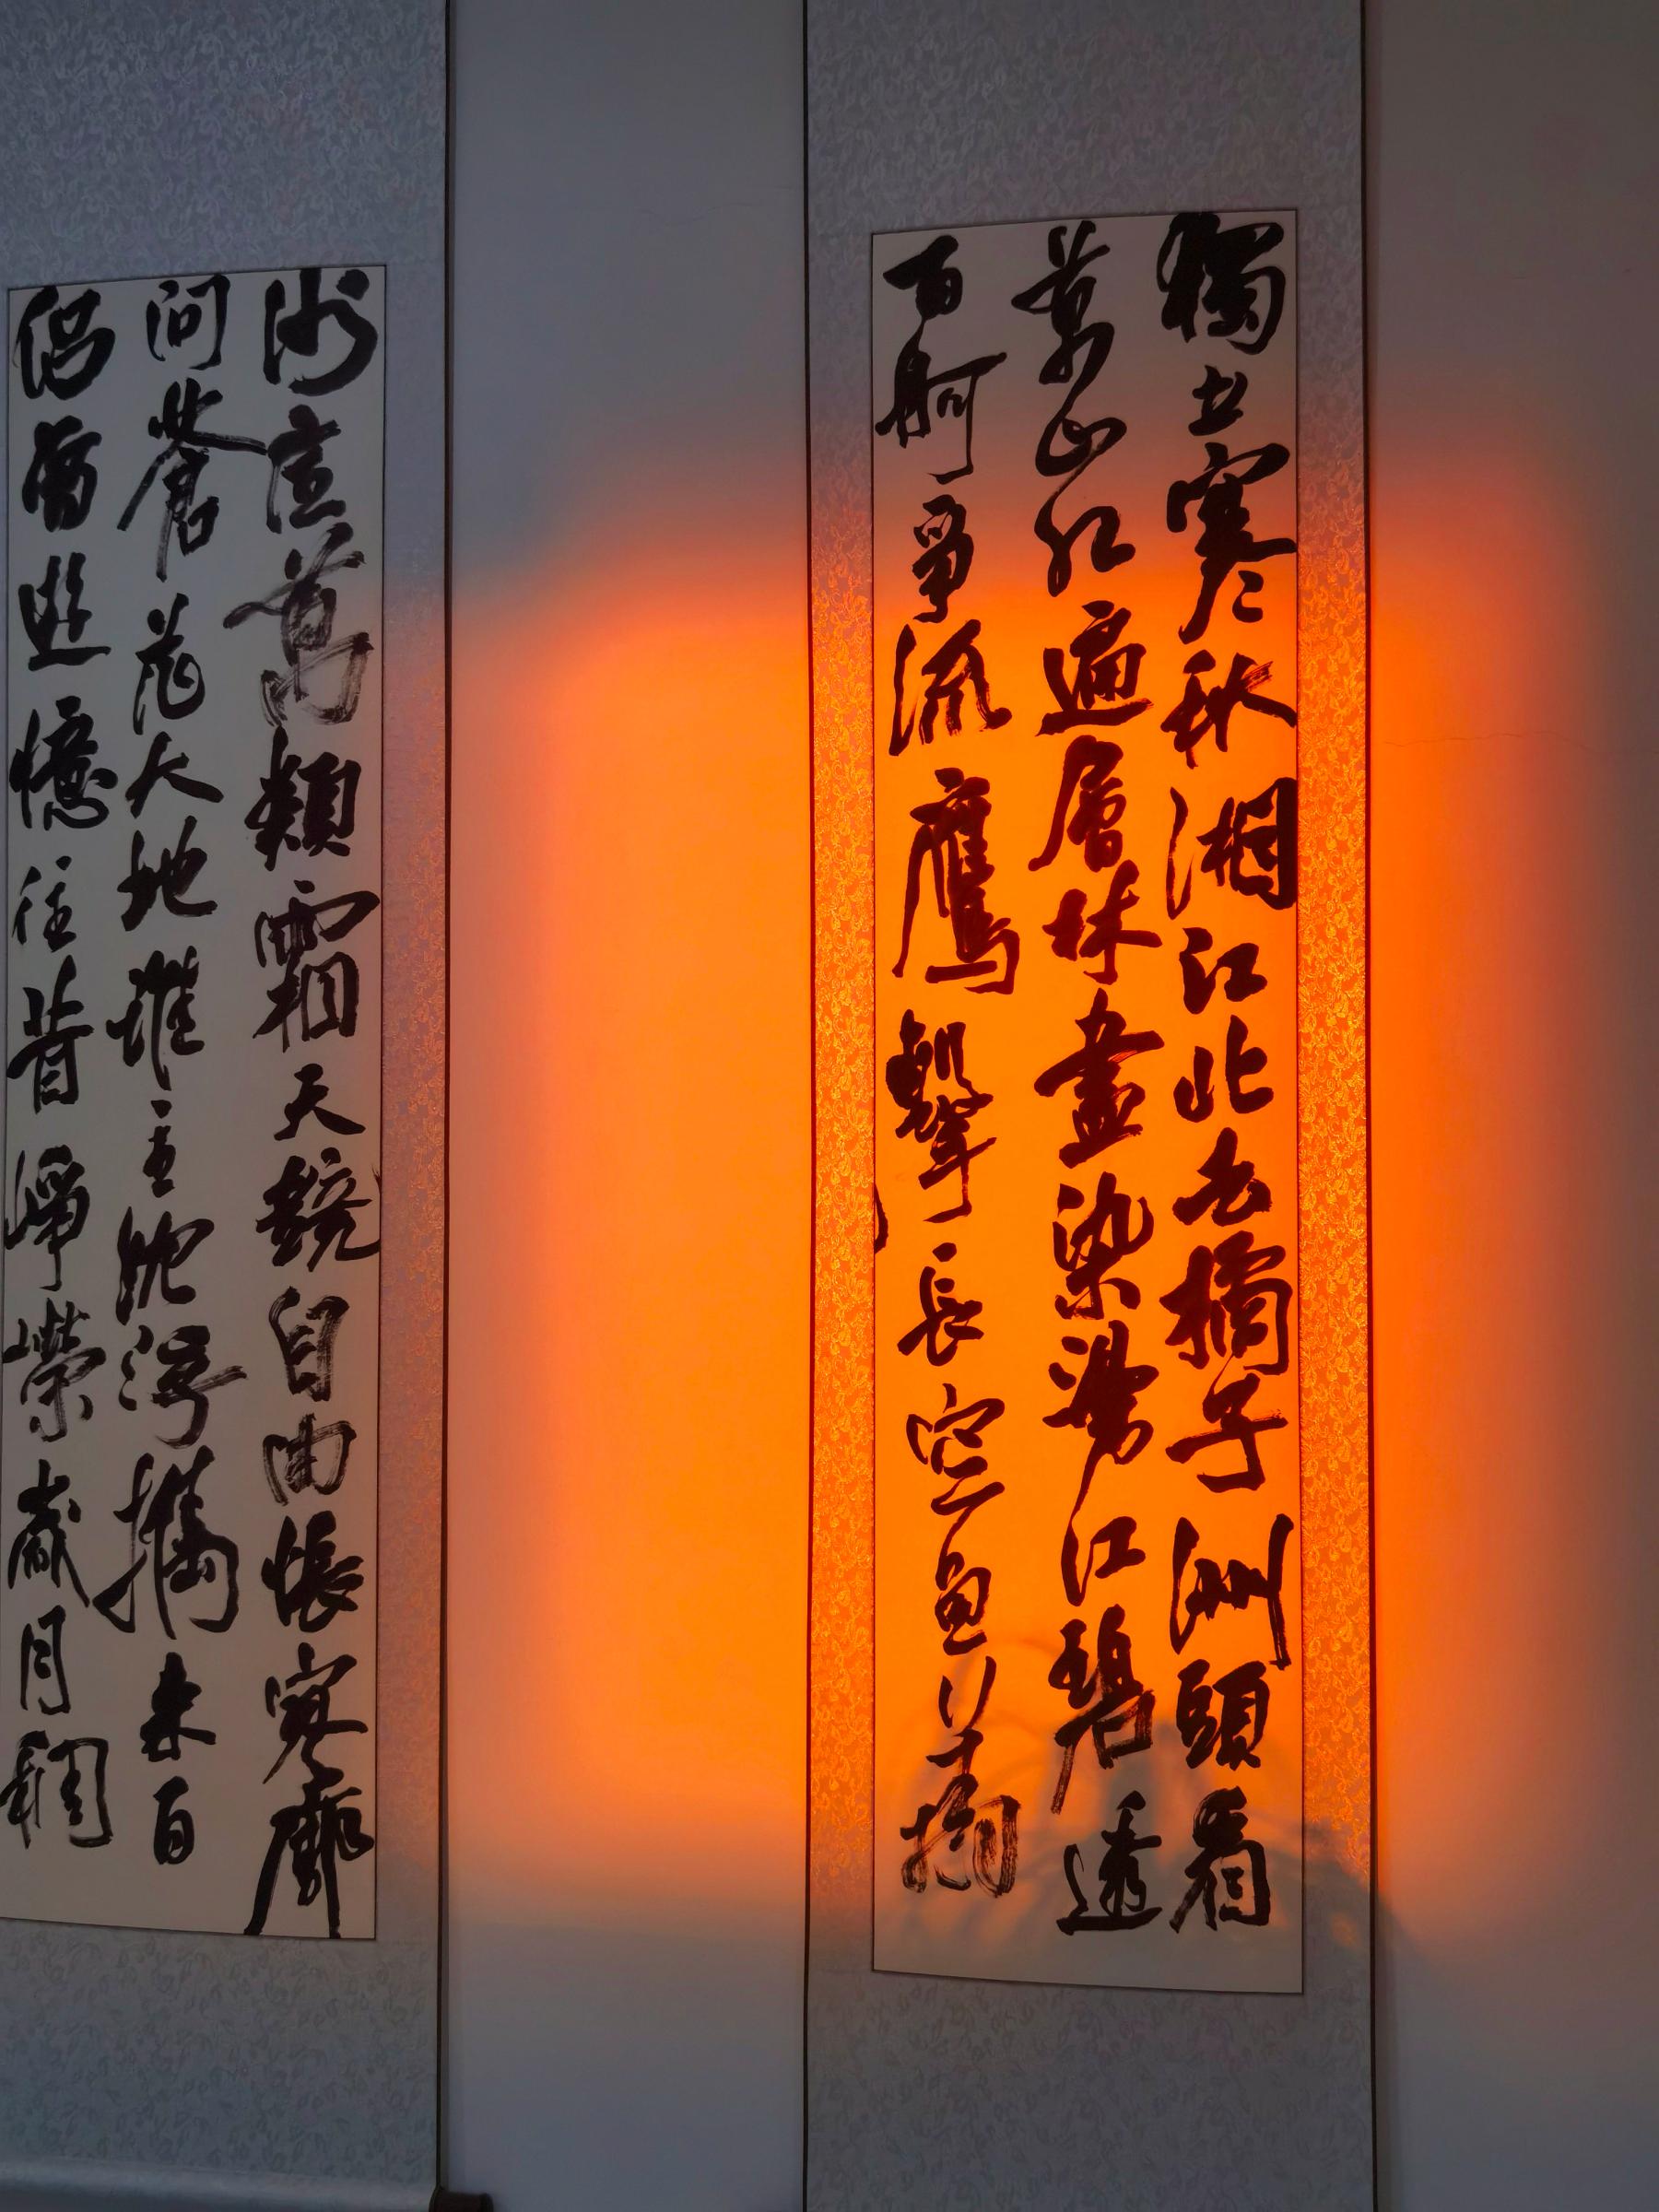 獨立寒秋湘江北去橘子洲頭看
萬山紅遍層林盡染漫江碧透
百舸爭流鷹擊長空魚翔
淺底萬類霜天競自由悵寥廓
問蒼茫大地誰主沈浮攜來百
侶曾遊憶往昔崢嶸歲月稠